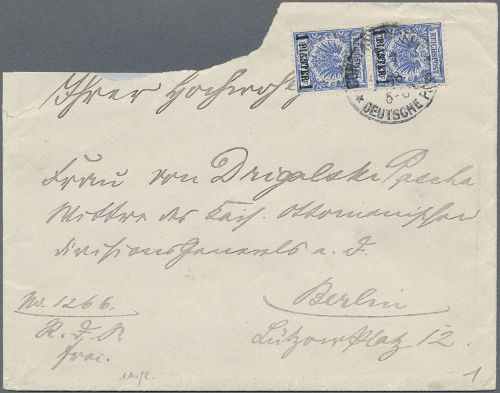 1 PIASTER 1
1 PIASTER 1
* DEUTSCHE P
Ihrer Hochwohlg
Frau von Drigalski Pascha
Wittwe des Kais. Ottomanischen
Divisions Generals a. D.
Berlin
Lützow Platz 12.
No. 1266.
R. d. P.
frei.
1 Aufl.
1